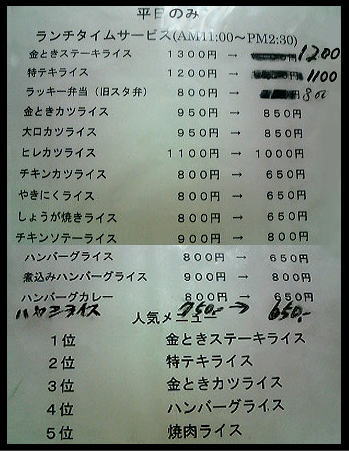 平日のみ
ランチタイムサービス(AM11:00～PM2:30)
金ときステーキライス 1300円 → 円 1200
特テキライス 1200円 → 円 1100
ラッキー弁当（旧スタ弁） 800円 → 円 800
金ときカツライス 950円 → 850円
大口カツライス 950円 → 850円
ヒレカツライス 1100円 → 1000円
チキンカツライス 800円 → 650円
やきにくライス 800円 → 650円
しょうが焼きライス 800円 → 650円
チキンソテーライス 900円 → 800円
ハンバーグライス 800円 → 650円
煮込みハンバーグライス 900円 → 800円
ハンバーグカレー 800円 → 650円
ハヤシライス 750.- → 650.-
人気メニュー
1位 金ときステーキライス
2位 特テキライス
3位 金ときカツライス
4位 ハンバーグライス
5位 焼肉ライス